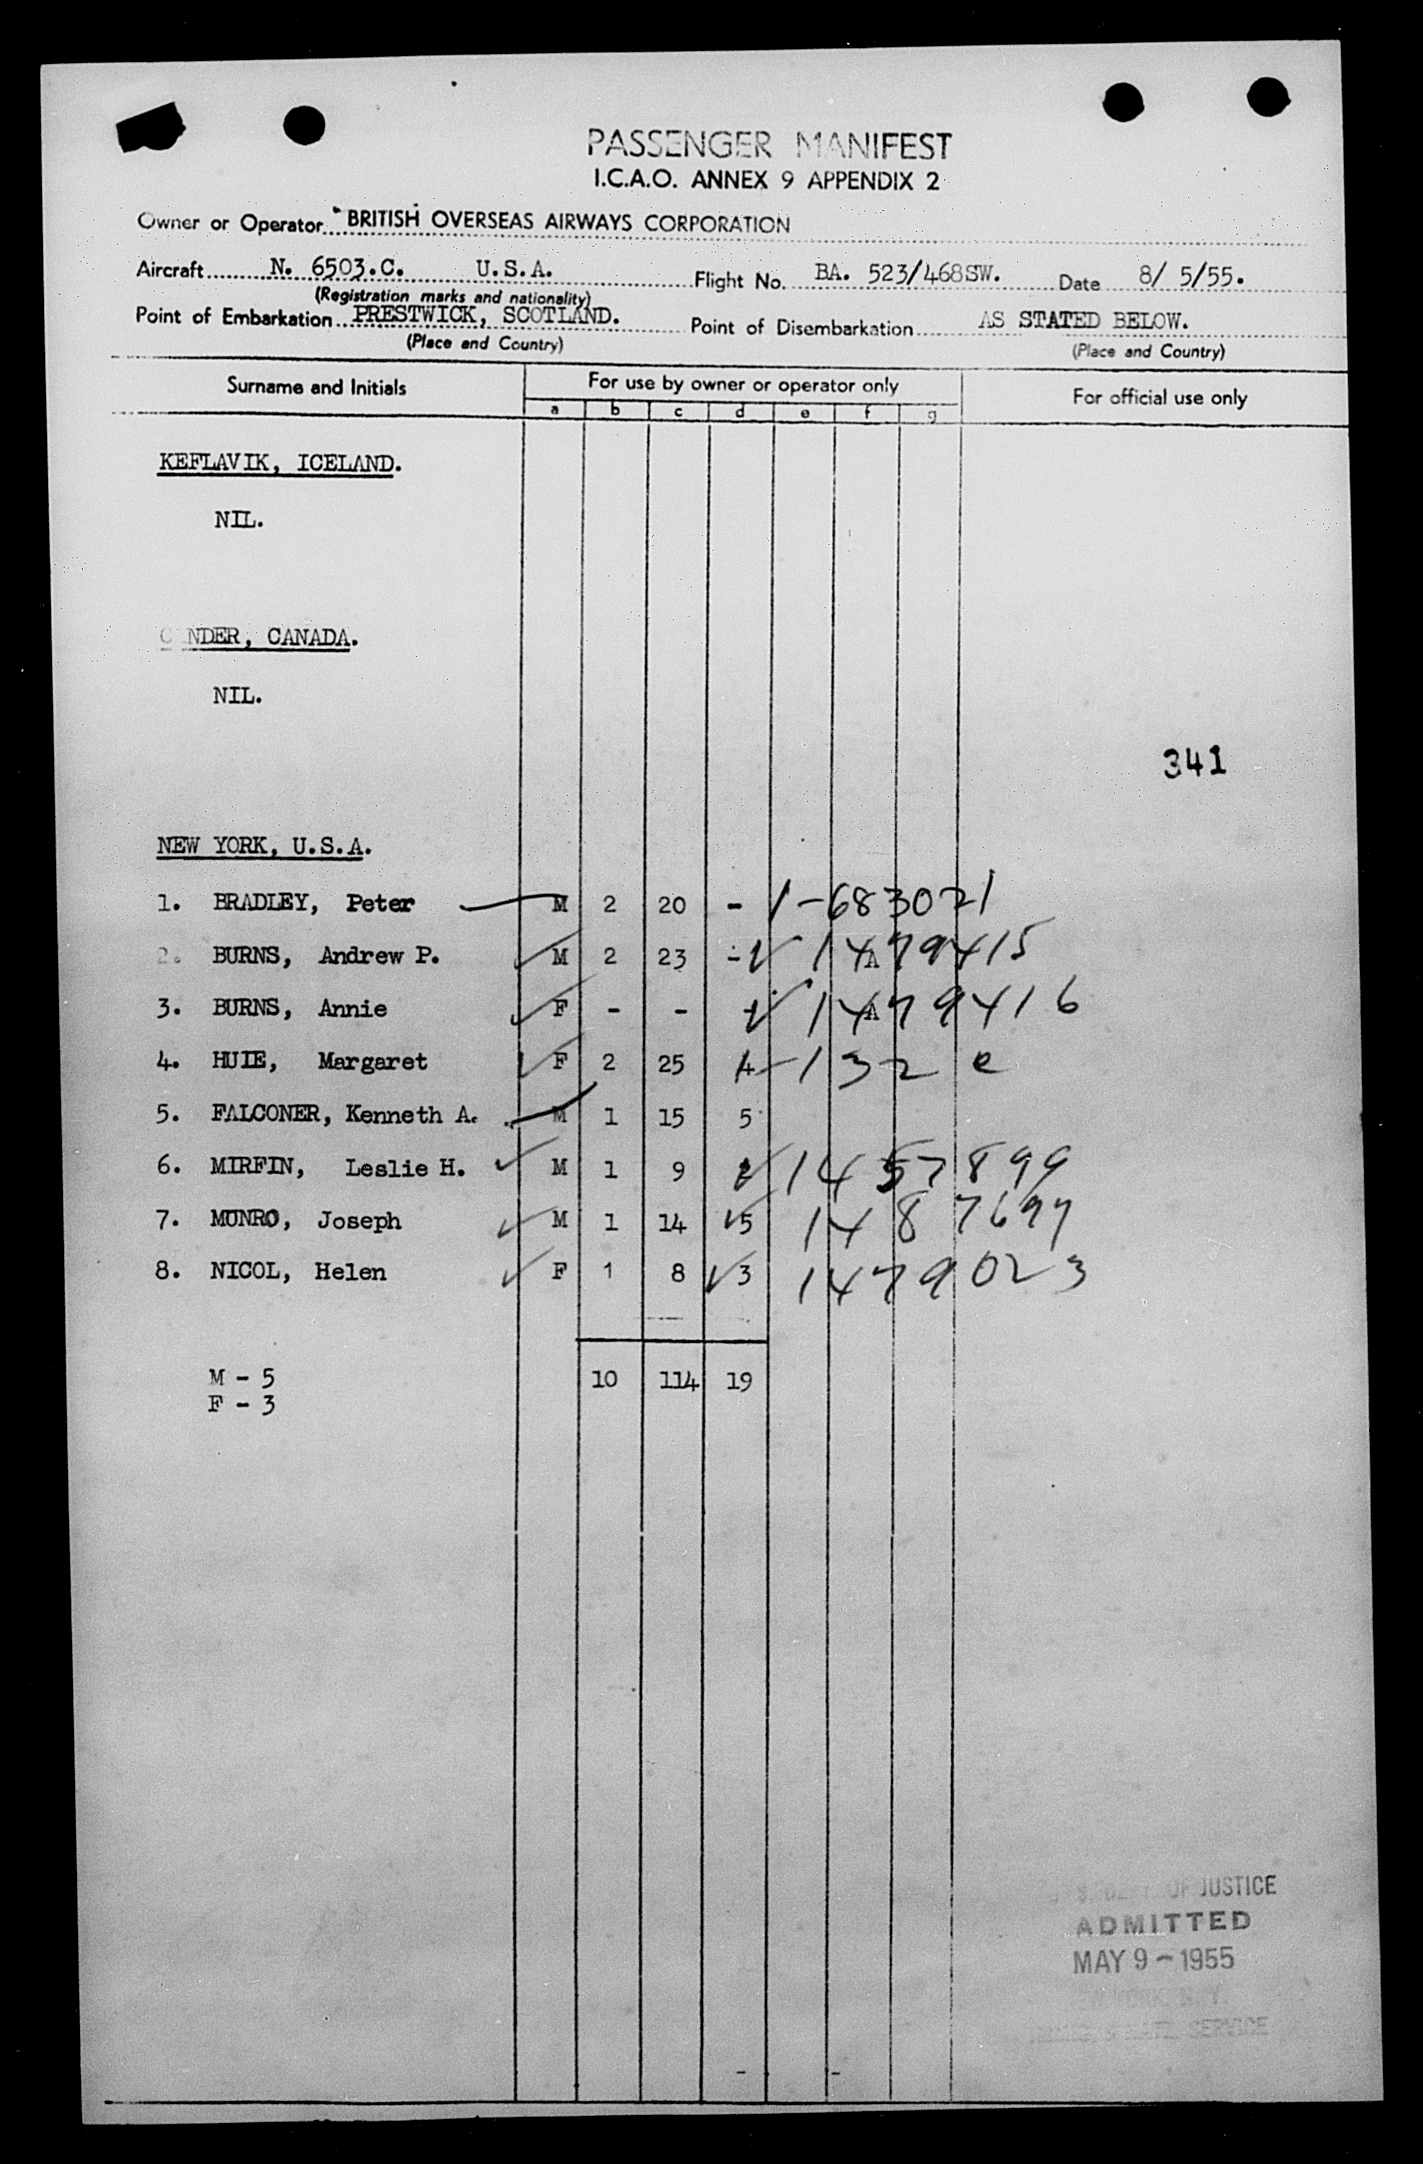 PASSENGER MANIFEST
I.C.A.O. ANNEX 9 APPENDIX 2
Owner or Operator BRITISH OVERSEAS AIRWAYS CORPORATION
Aircraft N. 6503.C. U.S.A. Flight No. BA. 523/468SW. Date 8/ 5/55.
(Registration marks and nationality)
Point of Embarkation PRESTWICK, SCOTLAND. Point of Disembarkation AS STATED BELOW.
(Place and Country) (Place and Country)
Surname and Initials For use by owner or operator only For official use only
a b c d e f g
KEFLAVIK, ICELAND.
NIL.
GANDER, CANADA.
NIL.
341
NEW YORK, U.S.A.
1. BRADLEY, Peter M 2 20 - 1-683021
2. BURNS, Andrew P. M 2 23 - A 1479415
3. BURNS, Annie F - - A 1479416
4. HUIE, Margaret F 2 25 4 -132 e
5. FALCONER, Kenneth A. M 1 15 5
6. MIRFIN, Leslie H. M 1 9 2 1457899
7. MUNRO, Joseph M 1 14 5 1487697
8. NICOL, Helen F 1 8 3 1479023
10 114 19
M - 5
F - 3
OF JUSTICE
ADMITTED
MAY 9 - 1955
SERVICE